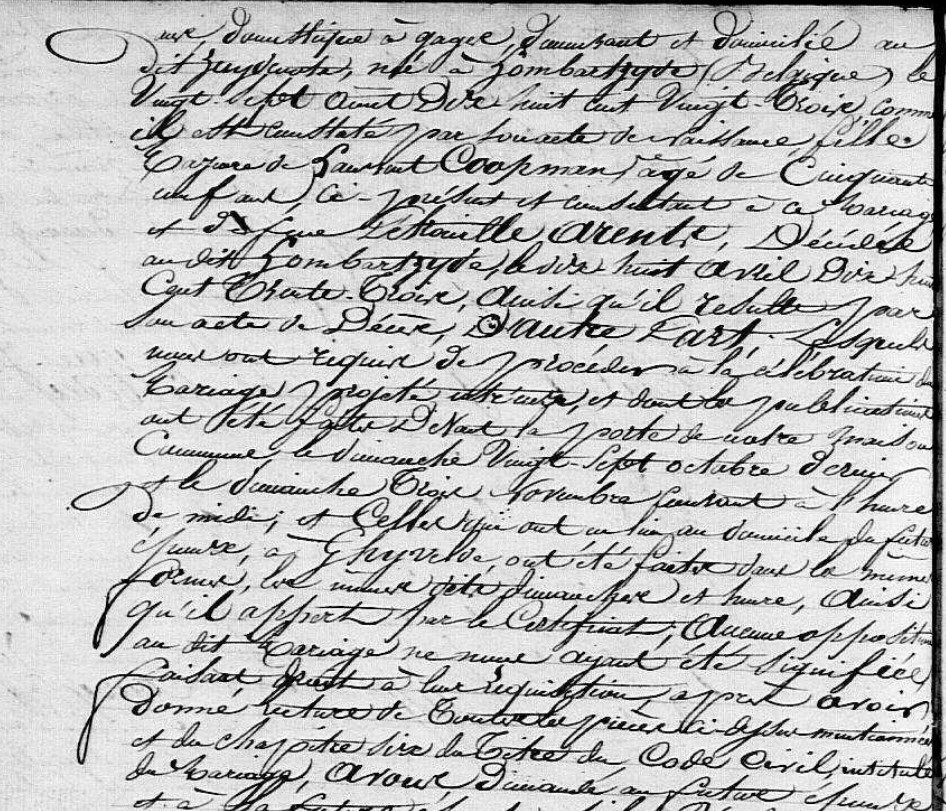 ans, domestique à gages, demeurant et domicilié au
dit Zuydcoote, née à Lombartzyde (Belgique) le
Vingt-Sept août Dix huit cent Vingt-Trois, comme
il est constaté par son acte de naissance fille
majeure de Laurent Coopman, âgé de Cinquante
ans, ci-présent et consentant à ce mariage
et de feue Arents, Décédée
au dit Lombartzyde, le dix huit avril Dix huit
Cent Trente-Trois, ainsi qu'il résulte par
Son acte de Décès, D'autre Part; Lesquels
nous ont requis de procéder à la célébration du
Mariage projeté entre eux, et dont les publications
ont été faites Devant la porte de notre maison
Commune, le dimanche Vingt-Sept octobre dernier
et le dimanche Trois Novembre Courant à l'heure
de midi; et Celles qui ont eu lieu au domicile du futur
époux, à Ghyvelde, ont été faites dans les mêmes
formes, les mêmes dits dimanches et heure, Ainsi
qu'il appert par le Certificat; Aucune opposition
au dit Mariage ne nous ayant été signifiée,
Faisant droit à leur réquisition, après avoir
donné lecture de Toutes les pièces ci-dessus mentionnées
et du chapitre six du Titre du Code Civil, intitulé
du Mariage, avons Demandé au futur époux
et à la future